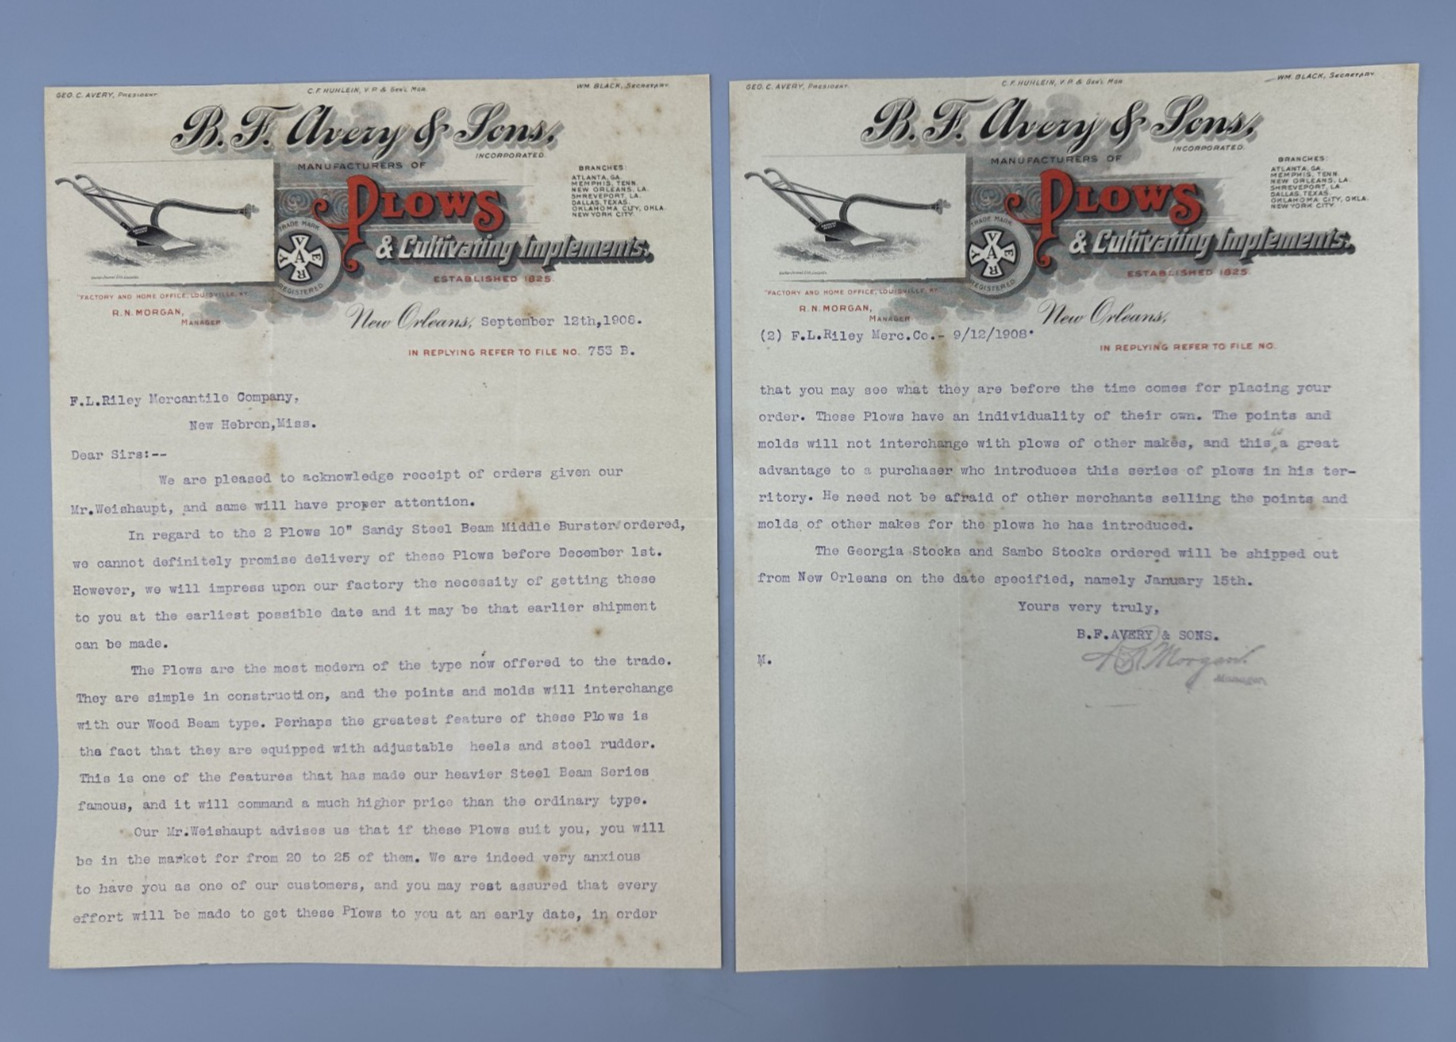 GEO. C. AVERY, PRESIDENT.
C. F. HUHLEIN, V. P. & GEN'L MGR.
WM. BLACK, SECRETARY.
B. F. Avery & Sons,
INCORPORATED.
MANUFACTURERS OF
PLOWS
& Cultivating Implements.
ESTABLISHED 1825.
BRANCHES:
ATLANTA, GA.
MEMPHIS, TENN.
NEW ORLEANS, LA.
SHREVEPORT, LA.
DALLAS, TEXAS.
OKLAHOMA CITY, OKLA.
NEW YORK CITY.
TRADE MARK
AVERY
REGISTERED
FACTORY AND HOME OFFICE, LOUISVILLE, KY.
R. N. MORGAN,
MANAGER
New Orleans, September 12th,1908.
IN REPLYING REFER TO FILE NO. 753 B.
F.L.Riley Mercantile Company,
New Hebron,Miss.
Dear Sirs:--
We are pleased to acknowledge receipt of orders given our
Mr.Weishaupt, and same will have proper attention.
In regard to the 2 Plows 10" Sandy Steel Beam Middle Burster ordered,
we cannot definitely promise delivery of these Plows before December 1st.
However, we will impress upon our factory the necessity of getting these
to you at the earliest possible date and it may be that earlier shipment
can be made.
The Plows are the most modern of the type now offered to the trade.
They are simple in construction, and the points and molds will interchange
with our Wood Beam type. Perhaps the greatest feature of these Plows is
the fact that they are equipped with adjustable heels and steel rudder.
This is one of the features that has made our heavier Steel Beam Series
famous, and it will command a much higher price than the ordinary type.
Our Mr.Weishaupt advises us that if these Plows suit you, you will
be in the market for from 20 to 25 of them. We are indeed very anxious
to have you as one of our customers, and you may rest assured that every
effort will be made to get these Plows to you at an early date, in order
GEO. C. AVERY, PRESIDENT.
C. F. HUHLEIN, V. P. & GEN'L MGR.
WM. BLACK, SECRETARY.
B. F. Avery & Sons,
INCORPORATED.
MANUFACTURERS OF
PLOWS
& Cultivating Implements.
ESTABLISHED 1825.
BRANCHES:
ATLANTA, GA.
MEMPHIS, TENN.
NEW ORLEANS, LA.
SHREVEPORT, LA.
DALLAS, TEXAS.
OKLAHOMA CITY, OKLA.
NEW YORK CITY.
TRADE MARK
AVERY
REGISTERED
FACTORY AND HOME OFFICE, LOUISVILLE, KY.
R. N. MORGAN,
MANAGER
New Orleans,
(2) F.L.Riley Merc.Co.- 9/12/1908.
IN REPLYING REFER TO FILE NO.
that you may see what they are before the time comes for placing your
order. These Plows have an individuality of their own. The points and
molds will not interchange with plows of other makes, and this is a great
advantage to a purchaser who introduces this series of plows in his ter-
ritory. He need not be afraid of other merchants selling the points and
molds of other makes for the plows he has introduced.
The Georgia Stocks and Sambo Stocks ordered will be shipped out
from New Orleans on the date specified, namely January 15th.
Yours very truly,
B.F.AVERY & SONS.
M.
R N Morgan
Manager